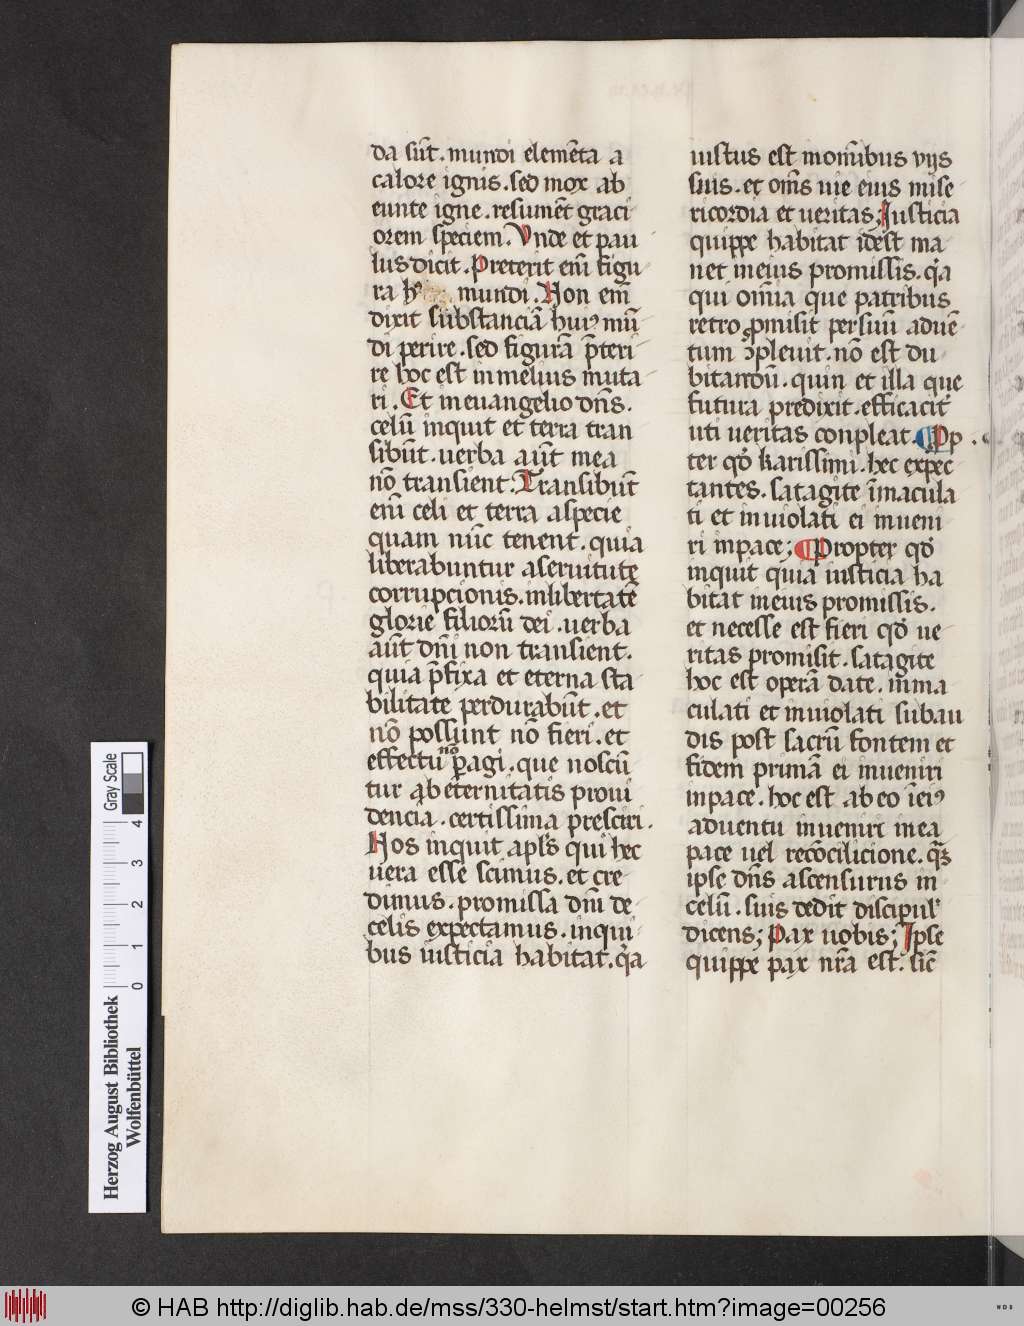 da su̅t. mundi eleme̅ta a
calore ignis. sed mox ab
eunte igne. resume̅t graci
orem speciem. Vnde et pau
lus dicit. Preterit eni̅ figu
ra hᵒ mundi. Non eni̅
dixit substancia̅ huiꝰ mu̅
di perire. sed figura̅ p̅teri
re hoc est in melius muta
ri. Et in euangelio dn̅s.
celu̅ inquit et terra tran
sibu̅t. uerba au̅t mea
no̅ transient. Transibu̅t
eni̅ celi et terra a specie
quam nu̅c tenent. quia
liberabuntur a seruitute
corrupcionis. in libertate̅
glorie filioru̅ dei. uerba
au̅t dn̅i non transient.
quia p̅fixa et eterna sta
bilitate perdurabu̅t. et
no̅ possunt no̅ fieri. et
effectu no̅ ꝑagi. que noscu̅
tur ab eternitatis proui
dencia. certissima presciri.
Nos inquit apl̅s qui hec
uera esse scimus. et cre
dimus. promissa dn̅i de
celis expectamus. in qui
bus iusticia habitat. qͥa
iustus est in om̅ibus vijs
suis. et om̅s uie eius mise
ricordia et ueritas; Iusticia
quippe habitat idest ma
net in eius promissis. qͥa
qui om̅ia que patribus
retro ꝓmisit per suu̅ adue̅
tum ꝯpleuit. no̅ est du
bitandu̅. quin et illa que
futura predixit. efficacit᷑
uti ueritas conpleat. ¶ Pp
ter qd̅ karissimi. hec expec
tantes. satagite i̅macula
ti et inuiolati ei inueni
ri in pace; ¶ Propter qd̅
inquit quia iusticia ha
bitat in eius promissis.
et necesse est fieri qd̅ ue
ritas promisit. satagite
hoc est opera̅ date. in ma
culati et inuiolati subau
dis post sacru̅ fontem et
fidem prima̅ ei inueniri
in pace. hoc est ab eo i̅ eiꝰ
aduentu inueniri in ea
pace uel reco̅cilicione. qꝫ
ipse dn̅s ascensurus in
celu̅. suis dedit discipul᷑
dicens; Pax uobis; Ipse
quippe pax nr̅a est. sic̅
Herzog August Bibliothek
Wolfenbüttel
0 1 2 3 4
Gray Scale
© HAB http://diglib.hab.de/mss/330-helmst/start.htm?image=00256